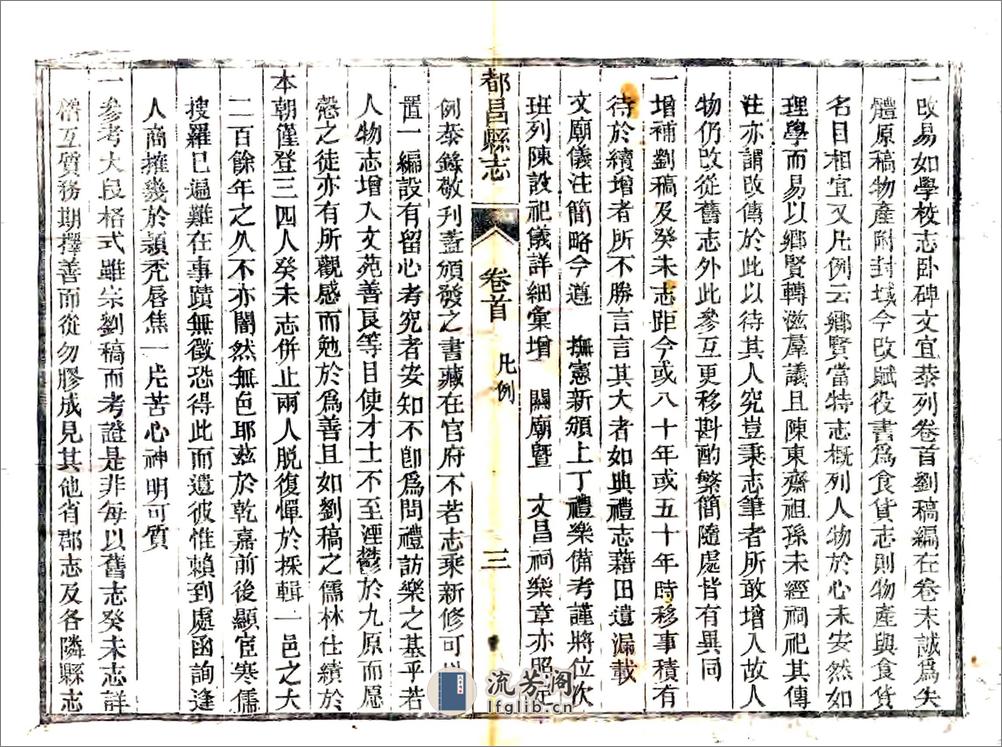 一改易如學校志卧碑文宜恭列卷首劉稿編在卷末誠爲失
體原稿物產附封域今改賦役書爲食貨志則物產與食貨
名目相宜又凡例云鄉賢當特志概列人物於心未安然如
理學而易以鄉賢轉滋羣議且陳東齋祖孫未經祠祀其傳
注亦謂改傳於此以待其人究豈秉志筆者所敢增入故人
物仍改從舊志外此參互更移斟酌繁簡隨處皆有異同
一增補劉稿及癸未志距今或八十年或五十年時移事積有
待於續增者所不勝言言其大者如典禮志藉田遺漏載
文廟儀注簡略今遵 撫憲新頒上丁禮樂備考謹將位次
班列陳設祀儀詳細彙增 關廟暨 文昌祠樂章亦照
都昌縣志 卷首 凡例 三
例恭錄敬刊蓋頒發之書藏在官府不若志乘新修可
置一編設有留心考究者安知不卽爲問禮訪樂之基乎若
人物志增入文苑善良等目使才士不至湮鬱於九原而愿
愨之徒亦有所觀感而勉於爲善且如劉稿之儒林仕績於
本朝僅登三四人癸未志併止兩人脫復憚於採輯一邑之大
二百餘年之久不亦闇然無色耶茲於乾嘉前後顯宦寒儒
搜羅已遍難在事蹟無徵恐得此而遺彼惟賴到處函詢逢
人商搉幾於穎禿唇焦一片苦心神明可質
一參考大段格式雖宗劉稿而考證是非每以舊志癸未志詳
稽互質務期擇善而從勿膠成見其他省郡志及各隣縣志
流芳阁
lfglib.cn